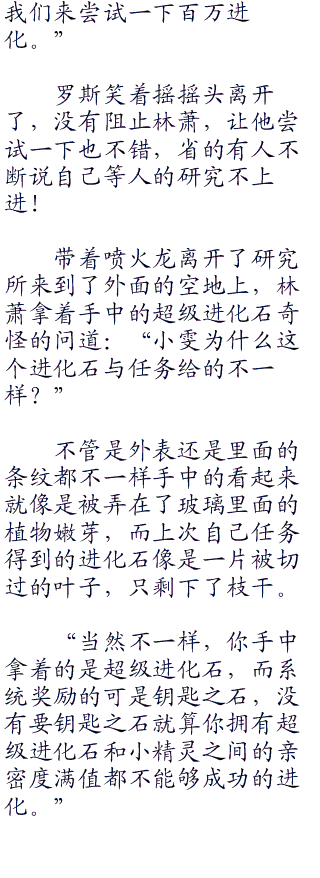 我们来尝试一下百万进
化。”
罗斯笑着摇摇头离开
了，没有阻止林萧，让他尝
试一下也不错，省的有人不
断说自己等人的研究不上
进！
带着喷火龙离开了研究
所来到了外面的空地上，林
萧拿着手中的超级进化石奇
怪的问道：“小雯为什么这
个进化石与任务给的不一
样？”
不管是外表还是里面的
条纹都不一样手中的看起来
就像是被弄在了玻璃里面的
植物嫩芽，而上次自己任务
得到的进化石像是一片被切
过的叶子，只剩下了枝干。
“当然不一样，你手中
拿着的是超级进化石，而系
统奖励的可是钥匙之石，没
有要钥匙之石就算你拥有超
级进化石和小精灵之间的亲
密度满值都不能够成功的进
化。”